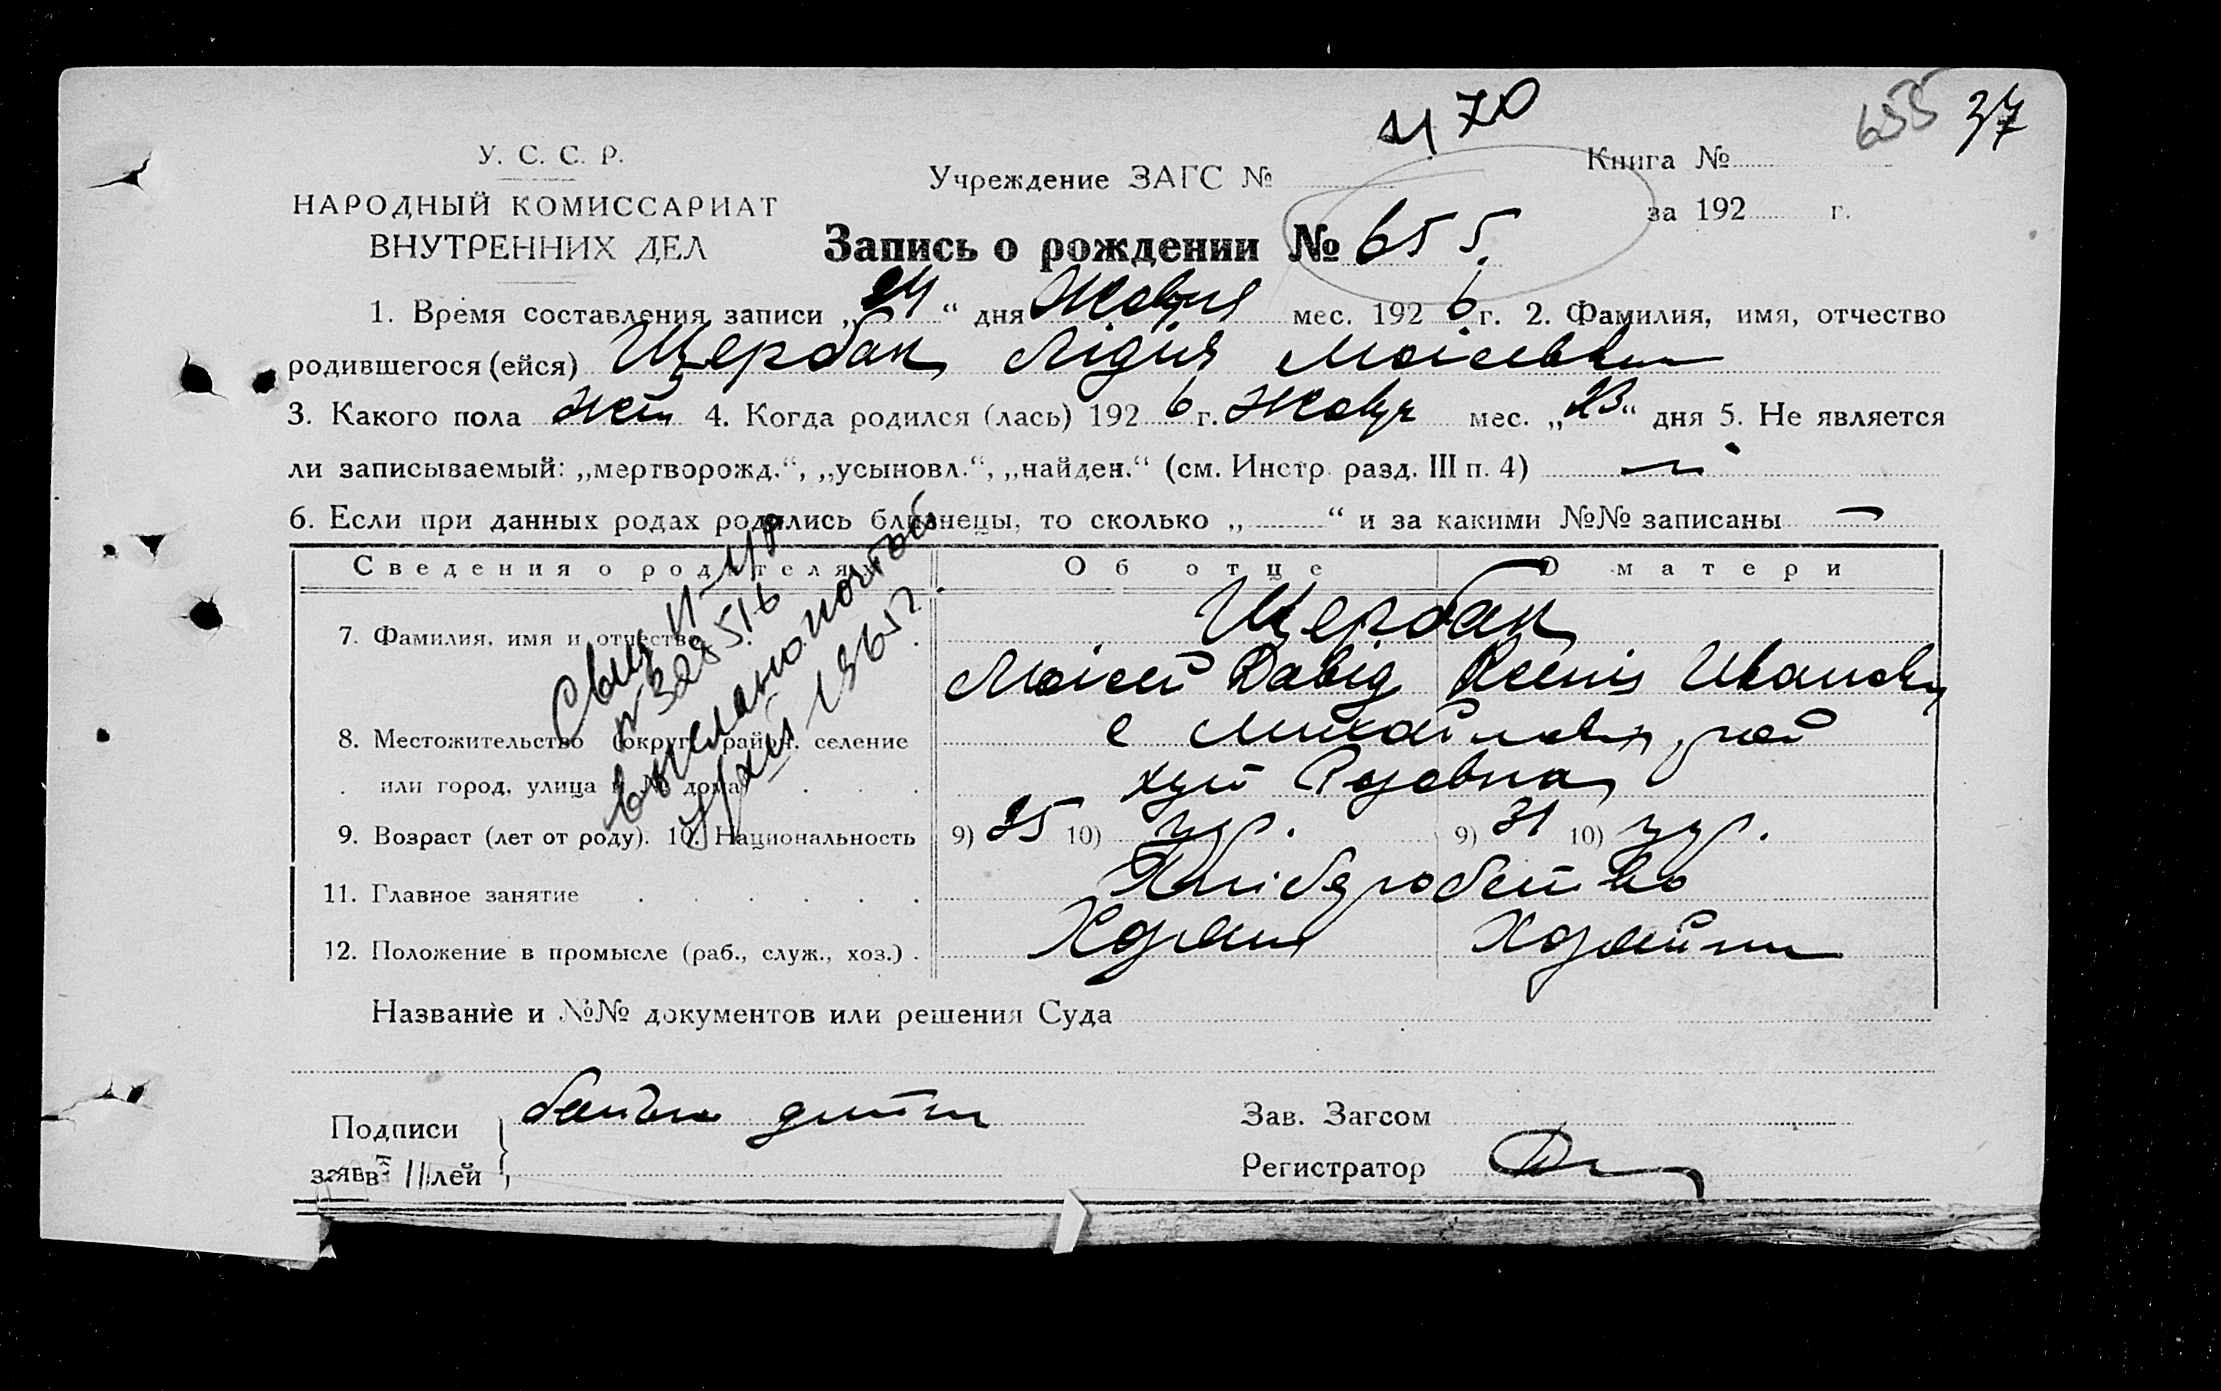 4170
655 37
У. С. С. Р.
НАРОДНЫЙ КОМИССАРИАТ
ВНУТРЕННИХ ДЕЛ
Учреждение ЗАГС №
Книга №
за 192 г.
Запись о рождении № 655.
1. Время составления записи „24“ дня Жовтня мес. 1926 г. 2. Фамилия, имя, отчество
родившегося (ейся) Щербак Лідія Моісеевна
3. Какого пола жен 4. Когда родился (лась) 1926 г. Жовтн мес. „23“ дня 5. Не является
ли записываемый: „мертворожд.“, „усыновл.“, „найден.“ (см. Инстр. разд. III п. 4)
6. Если при данных родах родились близнецы, то сколько „ “ и за какими №№ записаны —
Сведения о родителях
Об отце
О матери
7. Фамилия, имя и отчество
Щербак
Моісей Давід Ксенія Ивановн
8. Местожительство (округ, район, селение
или город, улица и № дома)
с Михайлівка, рай
9. Возраст (лет от роду). 10. Национальность
9) 25 10) укр. 9) 31 10) укр.
11. Главное занятие
Хліборобство
12. Положение в промысле (раб., служ., хоз.)
Хозяин Хозяйка
Свид II-УР
№ 328516
выслано почтой
1965г
Название и №№ документов или решения Суда
Подписи
заяв лей
батько дитини
Зав. Загсом
Регистратор